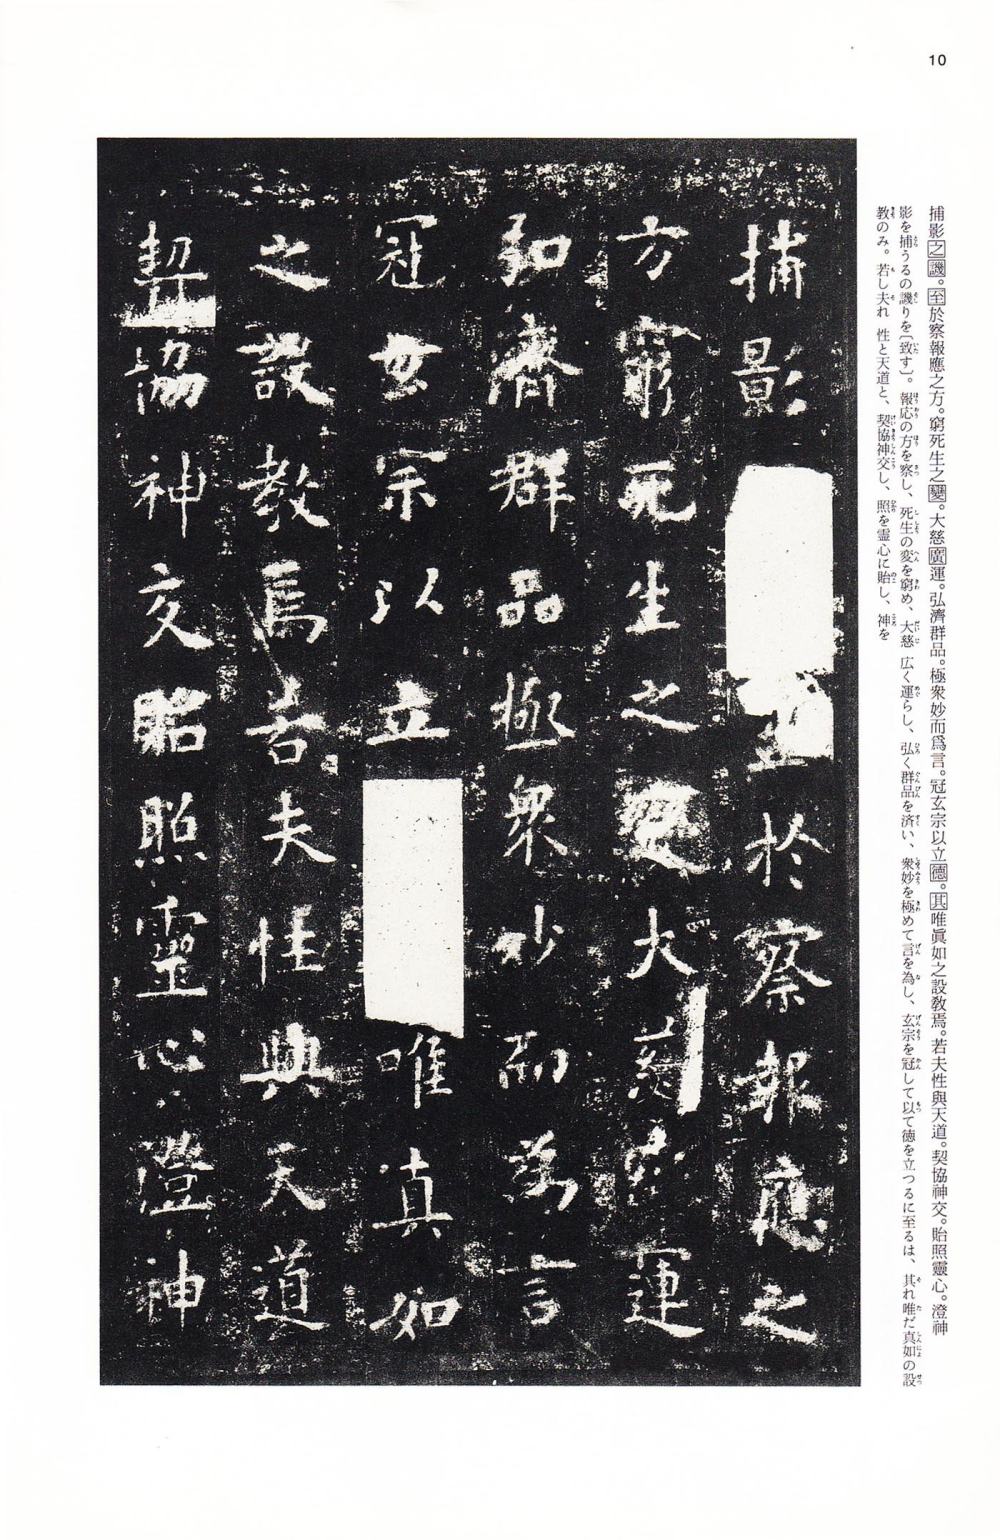 10
捕影之譏。至於察報應之方。窮死生之變。大慈廣運。弘濟群品。極衆妙而爲言。冠玄宗以立德。其唯眞如之設敎焉。若夫性與天道。契協神交。貽照靈心。澄神
影を捕うるの譏りを〔致す〕。報応の方を察し、死生の変を窮め、大慈 広く運らし、弘く群品を済い、衆妙を極めて言を為し、玄宗を冠して以て徳を立つるに至るは、其れ唯だ真如の設
教のみ。若し夫れ 性と天道と、契協神交し、照を霊心に貽し、神を
捕影至於察報應之
方窮死生之變大慈廣運
弘濟群品極衆妙而為言
冠玄宗以立唯真如
之設教焉若夫性與天道
契協神交貽照靈心澄神